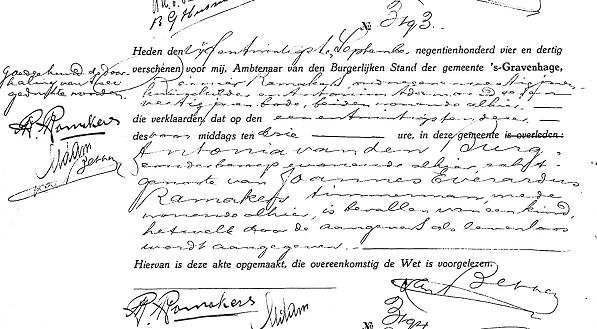 B G
No 3193
Heden den vijfentwintigste September negentienhonderd vier en dertig
verschenen voor mij, Ambtenaar van den Burgerlijken Stand der gemeente 's-Gravenhage,
Ramakers, oud negen en
en Antonius Adam, oud
veertig jaren, bode, beiden wonende alhier,
die verklaarden, dat op den een en twintigsten dezer
des voor middags ten drie ure, in deze gemeente is overleden:
Antonia van den Burg,
zonder beroep, wonende alhier, echt-
genoote van Joannes Everardus
Ramakers, timmerman, mede
wonende alhier, is bevallen van een kind,
hetwelk door de aangevers als levenloos
wordt aangegeven.
Hiervan is deze akte opgemaakt, die overeenkomstig de Wet is voorgelezen.
Goedgekeurd de door-
haling van twee
gedrukte woorden
R. Ramakers
Adam
R. Ramakers
Adam
van
No 3194